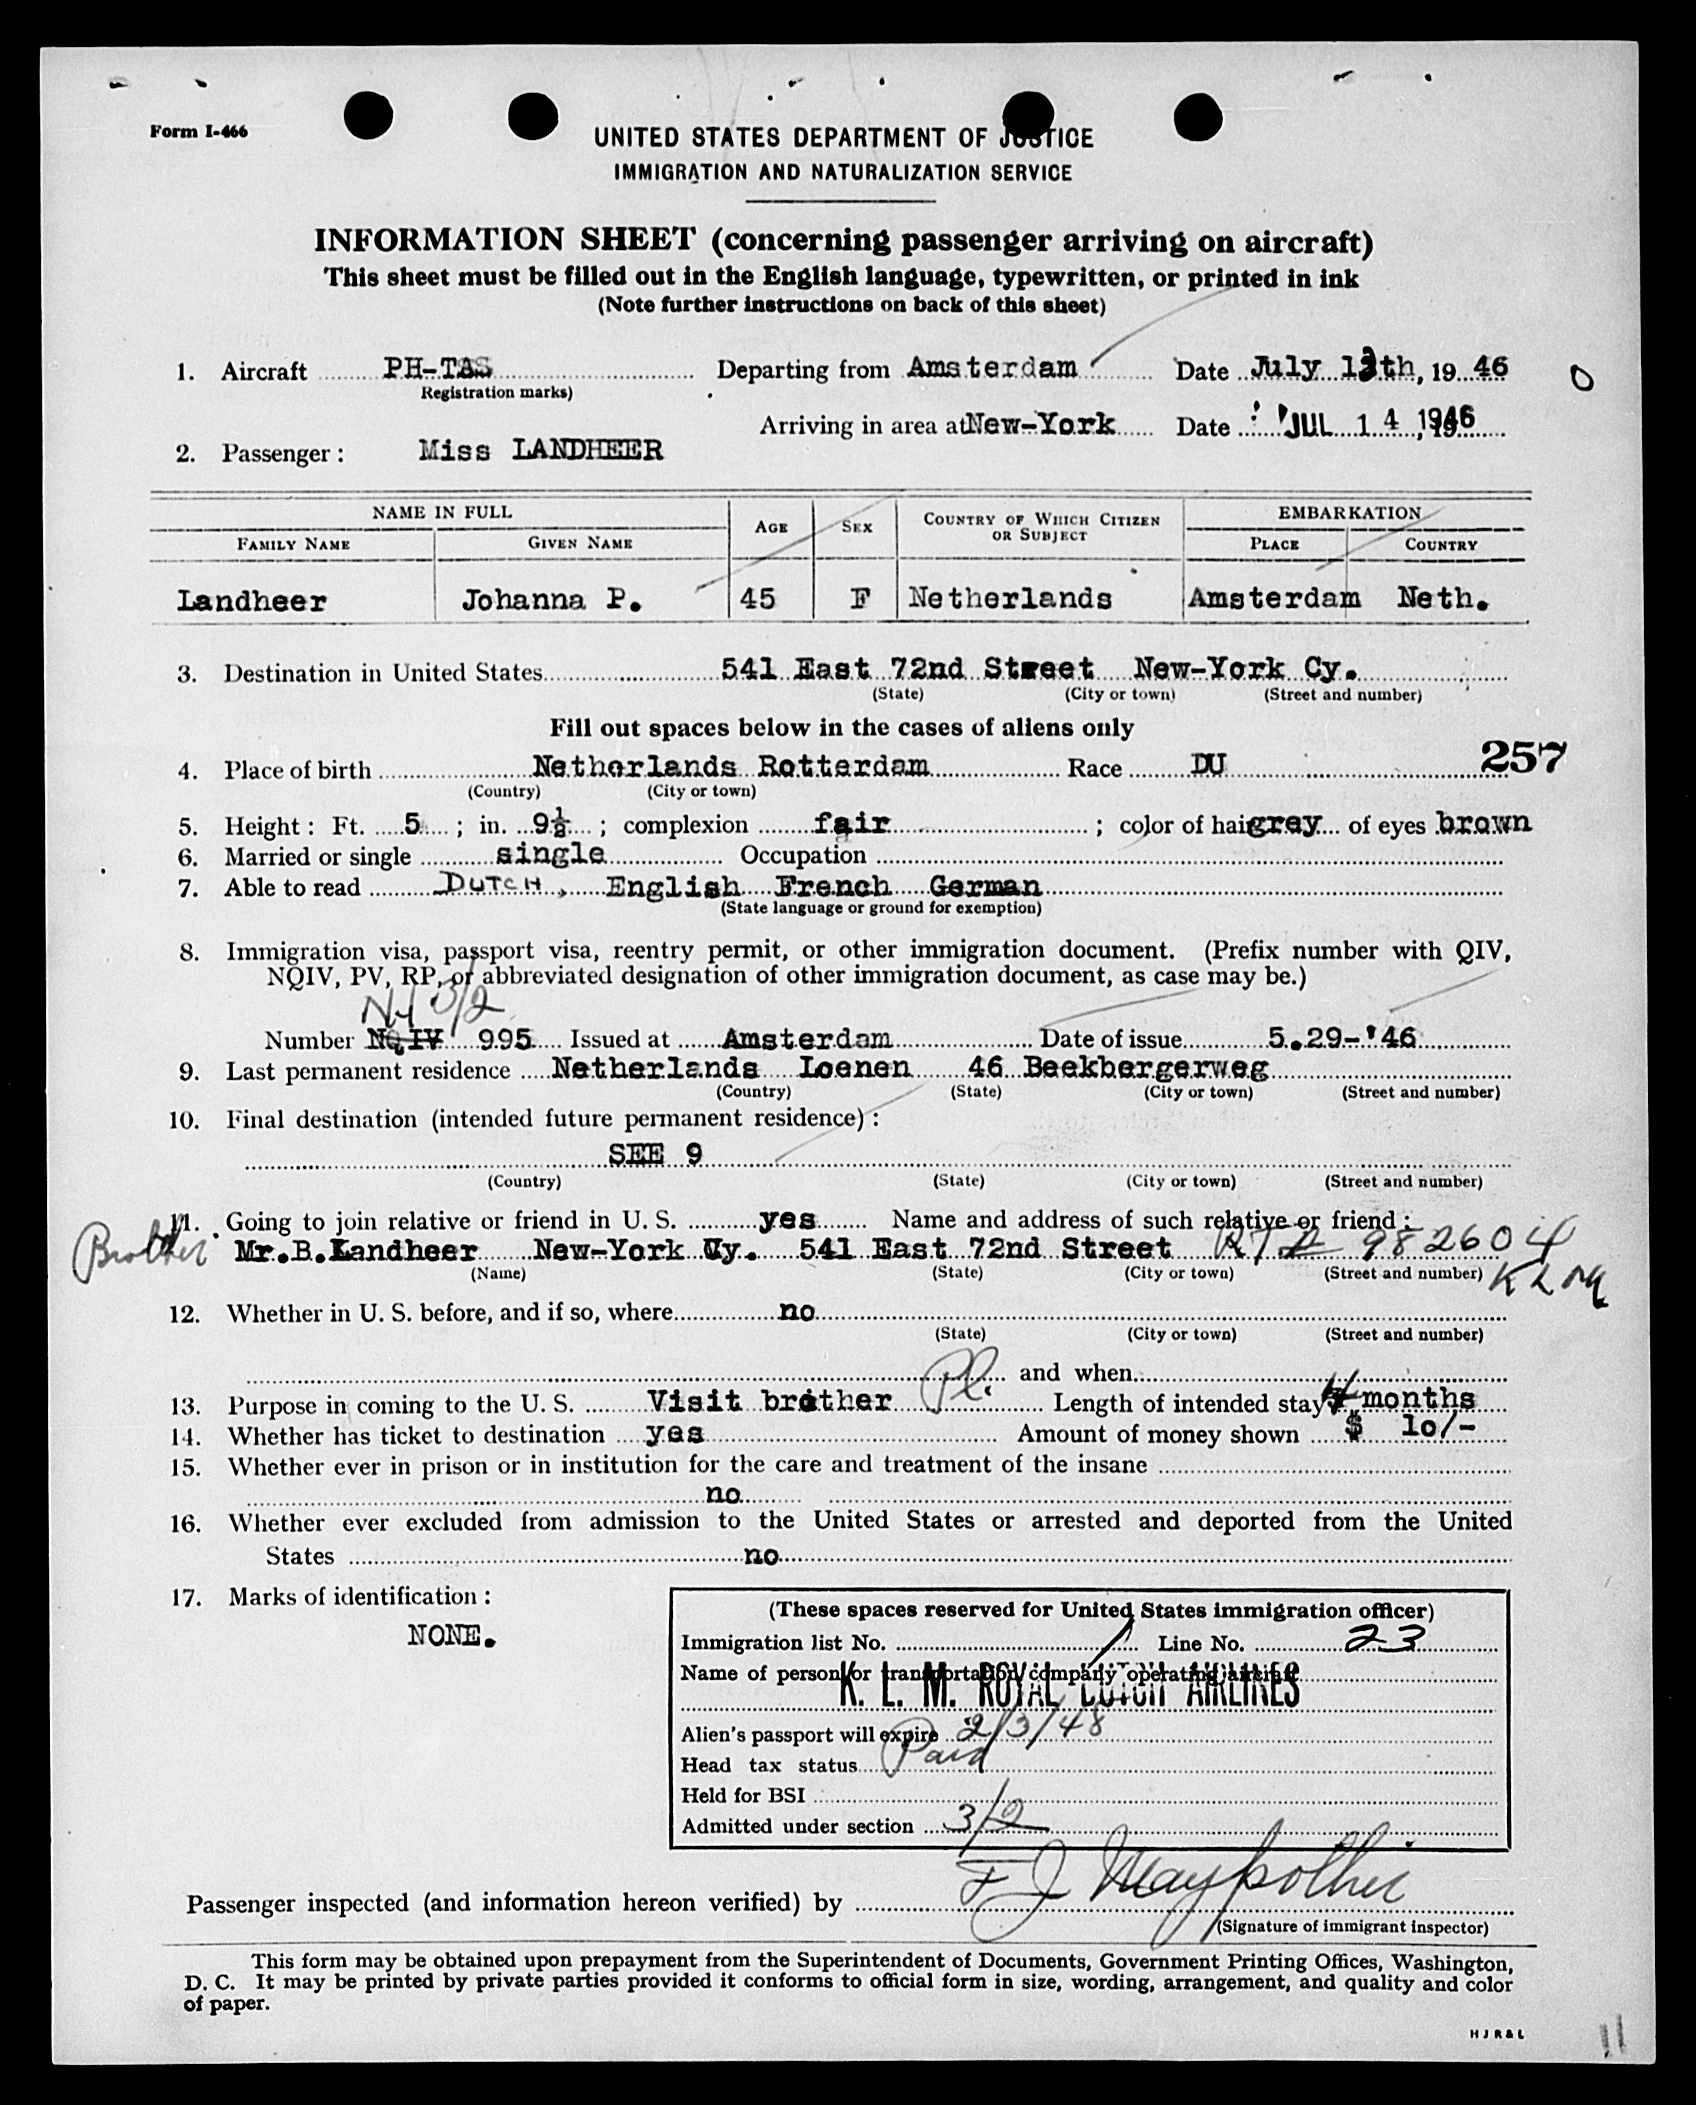 Form I-466
UNITED STATES DEPARTMENT OF JUSTICE
IMMIGRATION AND NATURALIZATION SERVICE
INFORMATION SHEET (concerning passenger arriving on aircraft)
This sheet must be filled out in the English language, typewritten, or printed in ink
(Note further instructions on back of this sheet)
1. Aircraft PH-TAS Departing from Amsterdam Date July 13th, 19 46
Registration marks)
Arriving in area at New-York Date JUL 14 1946
2. Passenger: Miss LANDHEER
NAME IN FULL AGE SEX COUNTRY OF WHICH CITIZEN OR SUBJECT EMBARKATION
FAMILY NAME GIVEN NAME PLACE COUNTRY
Landheer Johanna P. 45 F Netherlands Amsterdam Neth.
3. Destination in United States 541 East 72nd Street New-York Cy.
(State) (City or town) (Street and number)
Fill out spaces below in the cases of aliens only
257
4. Place of birth Netherlands Rotterdam Race DU
(Country) (City or town)
5. Height: Ft. 5; in. 9½; complexion fair; color of hair grey of eyes brown
6. Married or single single Occupation
7. Able to read DUTCH, English French German
(State language or ground for exemption)
8. Immigration visa, passport visa, reentry permit, or other immigration document. (Prefix number with QIV,
NQIV, PV, RP, or abbreviated designation of other immigration document, as case may be.)
3/2
Number NQIV 995 Issued at Amsterdam Date of issue 5.29-'46
9. Last permanent residence Netherlands Loenen 46 Beekbergerweg
(Country) (State) (City or town) (Street and number)
10. Final destination (intended future permanent residence):
SEE 9
(Country) (State) (City or town) (Street and number)
11. Going to join relative or friend in U. S. yes Name and address of such relative or friend:
Brother Mr.B.Landheer New-York Cy. 541 East 72nd Street 982604
(Name) (State) (City or town) (Street and number)
12. Whether in U. S. before, and if so, where no
(State) (City or town) (Street and number)
and when
13. Purpose in coming to the U. S. Visit brother Pl. Length of intended stay 4 months
14. Whether has ticket to destination yes Amount of money shown $ 10/-
15. Whether ever in prison or in institution for the care and treatment of the insane
no
16. Whether ever excluded from admission to the United States or arrested and deported from the United
States no
17. Marks of identification:
NONE.
(These spaces reserved for United States immigration officer)
Immigration list No. 1 Line No. 23
Name of person or transportation company operating aircraft
K. L. M. ROYAL DUTCH AIRLINES
Alien's passport will expire 2/3/48
Head tax status Paid
Held for BSI
Admitted under section 3/2
Passenger inspected (and information hereon verified) by
(Signature of immigrant inspector)
This form may be obtained upon prepayment from the Superintendent of Documents, Government Printing Offices, Washington,
D. C. It may be printed by private parties provided it conforms to official form in size, wording, arrangement, and quality and color
of paper.
H J R & L
11